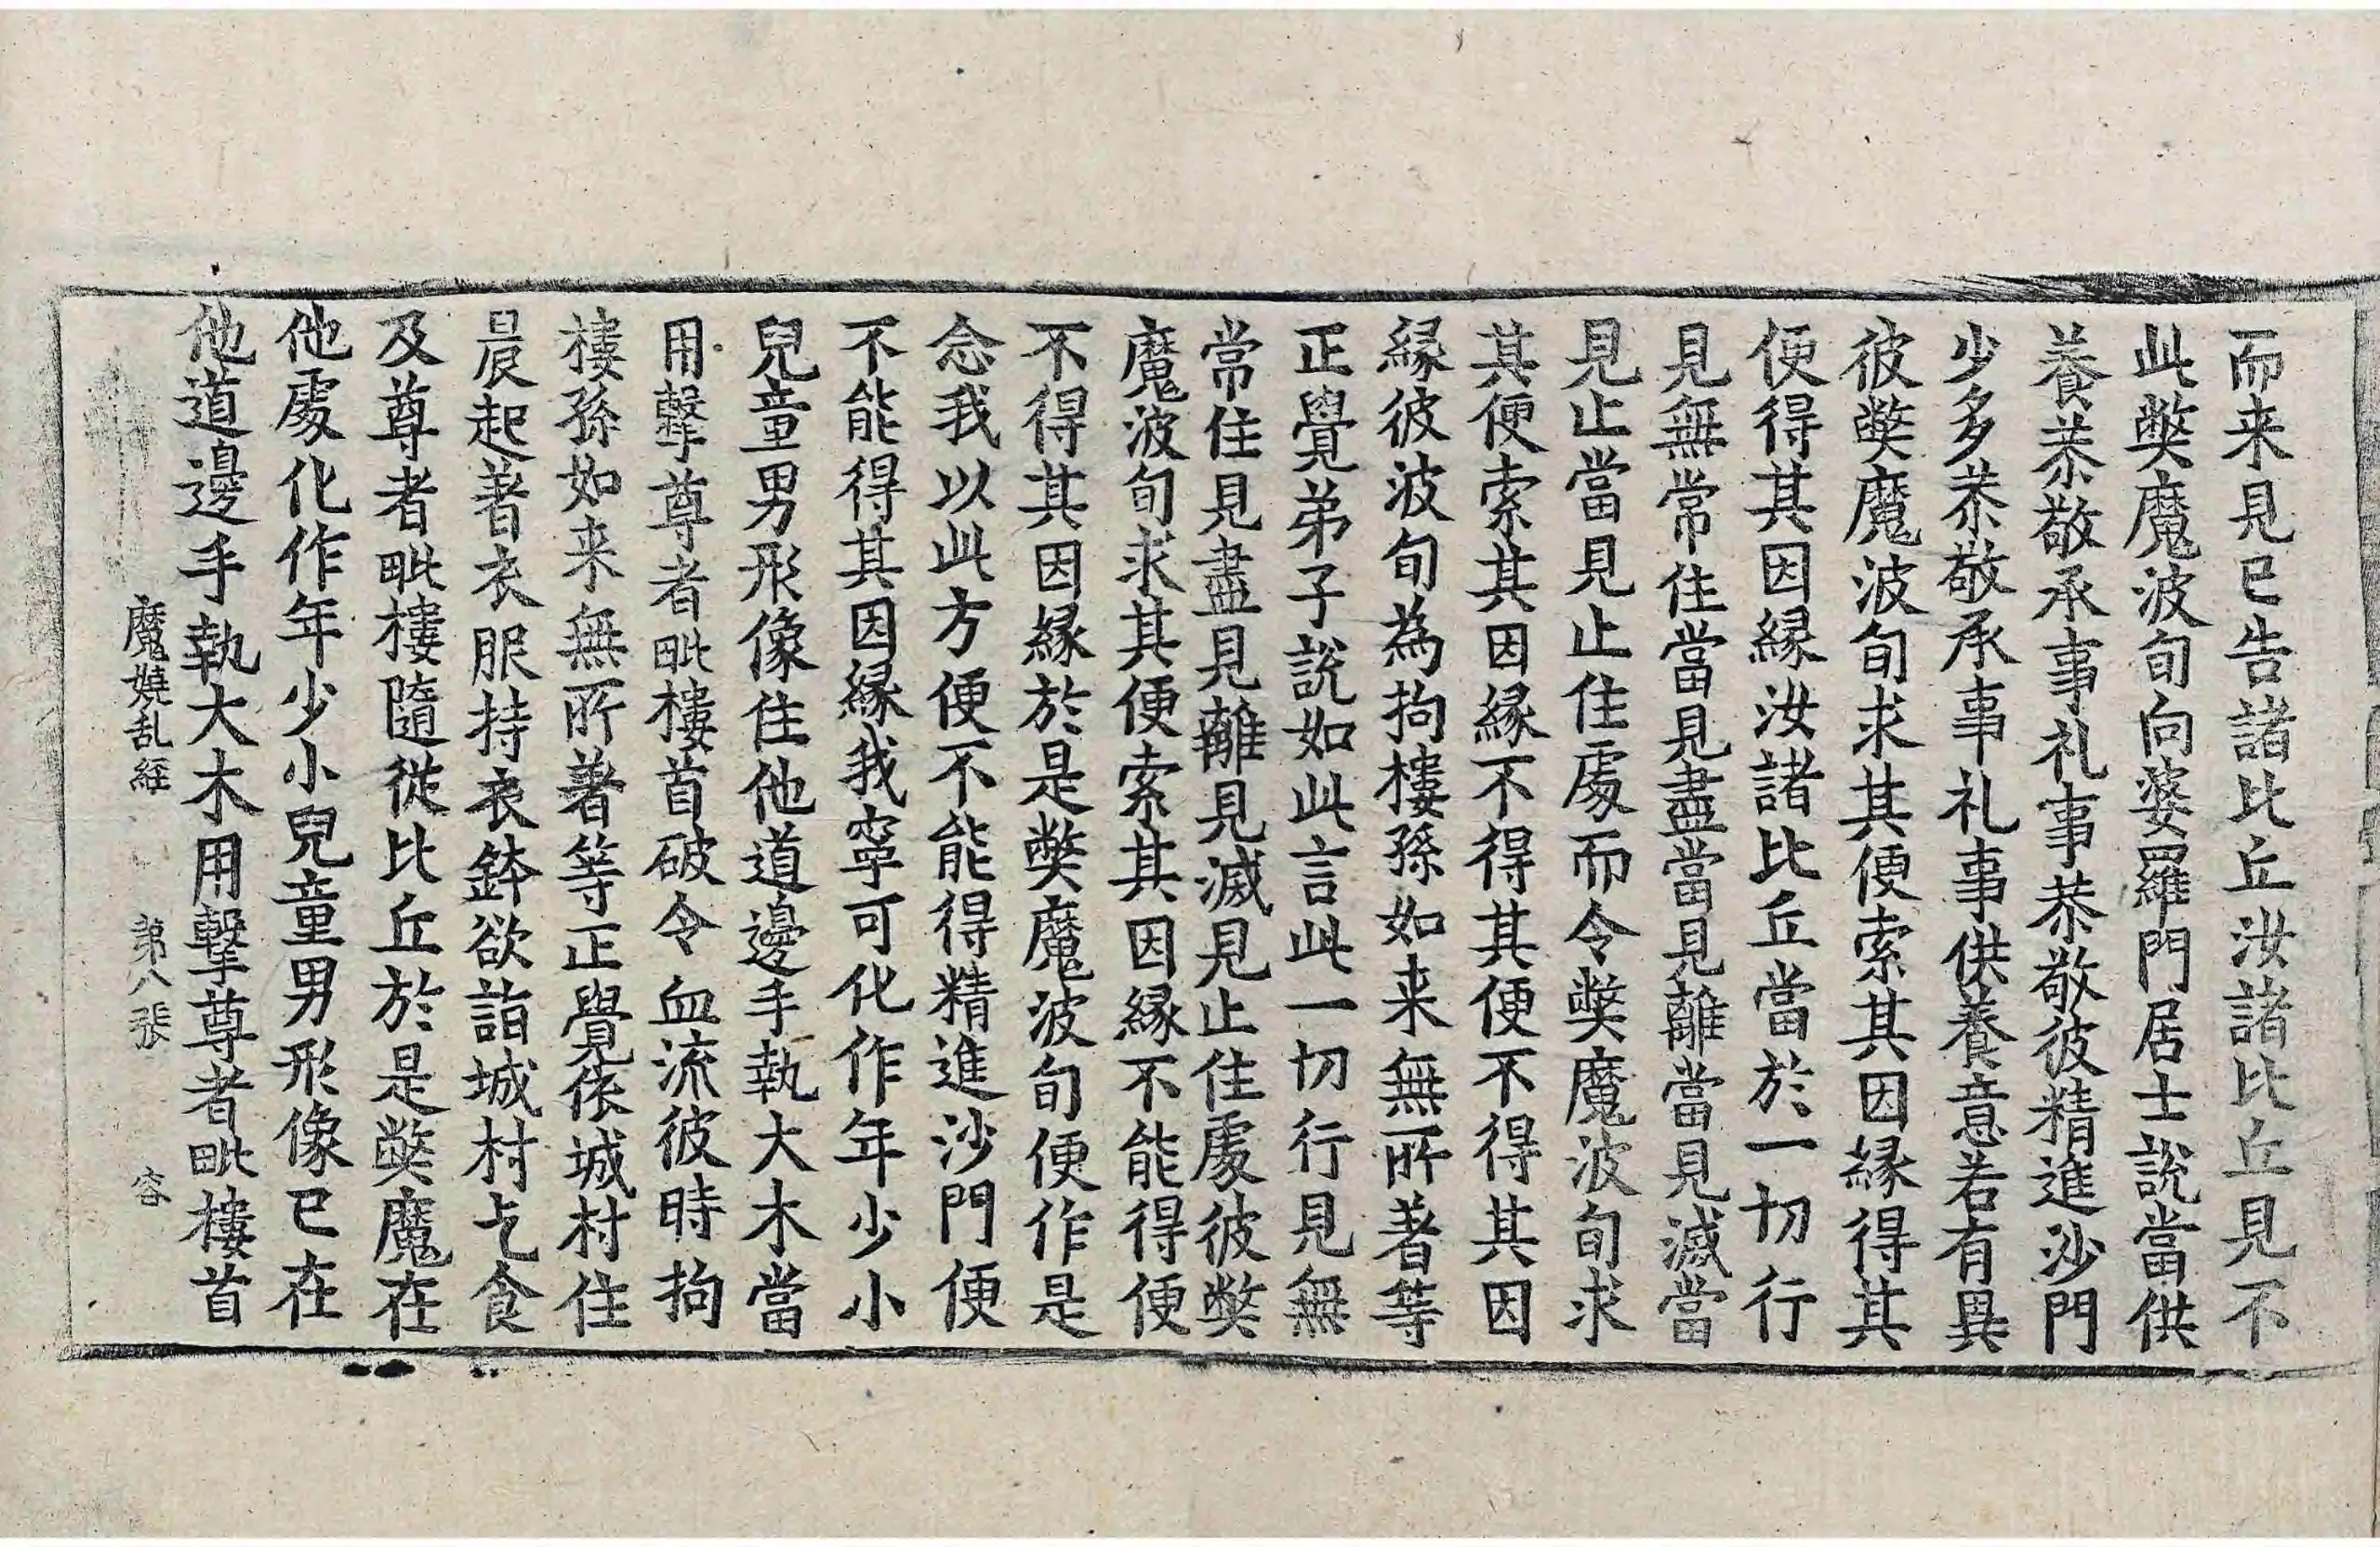 而来見已告諸比丘汝諸比丘見不
此弊魔波旬向婆羅門居士說當供
養恭敬承事礼事恭敬彼精進沙門
少多恭敬承事礼事供養意若有異
彼弊魔波旬求其便索其因縁得其
便得其因縁汝諸比丘當於一切行
見無常住當見盡當見離當見滅當
見止當見止住處而令弊魔波旬求
其便索其因縁不得其便不得其因
縁彼波旬為拘樓孫如来無所著等
正覺弟子說如此言此一切行見無
常住見盡見離見滅見止住處彼弊
魔波旬求其便索其因縁不能得便
不得其因縁於是弊魔波旬便作是
念我以此方便不能得精進沙門便
不能得其因縁我寧可化作年少小
兒童男形像住他道邊手執大木當
用擊尊者毗樓首破令血流彼時拘
樓孫如来無所著等正覺依城村住
晨起著衣服持衣鉢欲詣城村乞食
及尊者毗樓隨從比丘於是弊魔在
他處化作年少小兒童男形像已在
他道邊手執大木用擊尊者毗樓首
魔嬈乱経 第八張 容